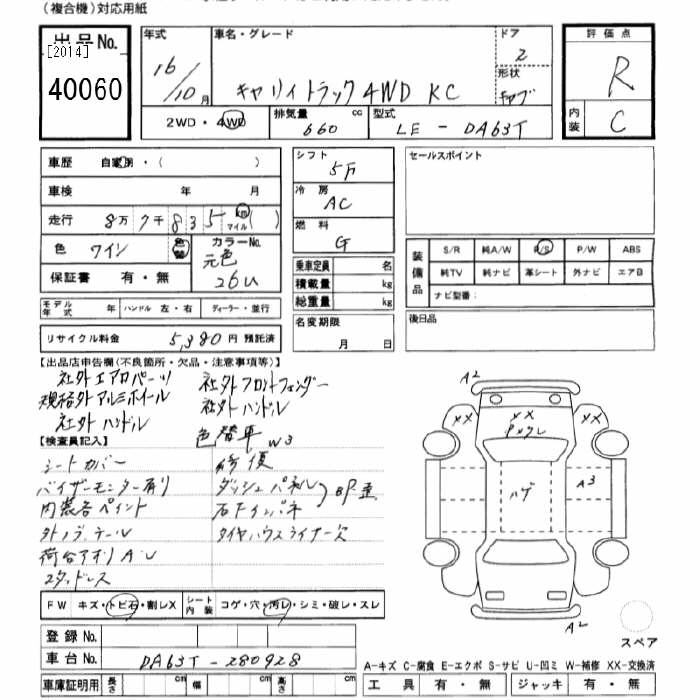 (複合機)対応用紙
出品No.
[2014]
40060
年式 車名・グレード ドア
16/10月 キャリィトラック 4WD KC 2
形状
2WD・4WD 排気量 cc 型式
660 LE-DA63T
評価点
R
内装 C
車歴 自家用・( )
車検 年 月
走行 8万 7千 8 3 5 km マイル ( )
色 ワイン 色替 カラーNo.
元色 26U
保証書 有・無
モデル年式 年 ハンドル 左・右 ディーラー・並行
リサイクル料金 5,380円 預託済
シフト 5F
冷房 AC
燃料 G
乗車定員 名
積載量 kg
総重量 kg
名変期限
月 日
セールスポイント
装備品 S/R 純A/W P/S P/W ABS
純TV 純ナビ 革シート 外ナビ エアB
ナビ型番:
後日品
【出品店申告欄(不良箇所・欠品・注意事項等)】
社外エアロパーツ 社外フロントフェンダー
規格外アルミホイール 社外ハンドル
社外ハンドル
色替車 W3
【検査員記入】
シートカバー 修復
バイザーモニター有り ダッシュパネル
内装各ペイント
タイヤハウスライナー欠
荷台アオリ A・U
スタッドレス
FW キズ・トビ石・割レX シート内装 コゲ・穴・汚レ・シミ・破レ・スレ
登録No.
車台No. DA63T-280928
車庫証明用 長さ cm 幅 cm 高さ cm
A2
XX
XX
XX
ハゲ
A3
A2
スペア
A-キズ C-腐食 E-エクボ S-サビ U-凹ミ W-補修 XX-交換済
工具 有・無 ジャッキ 有・無